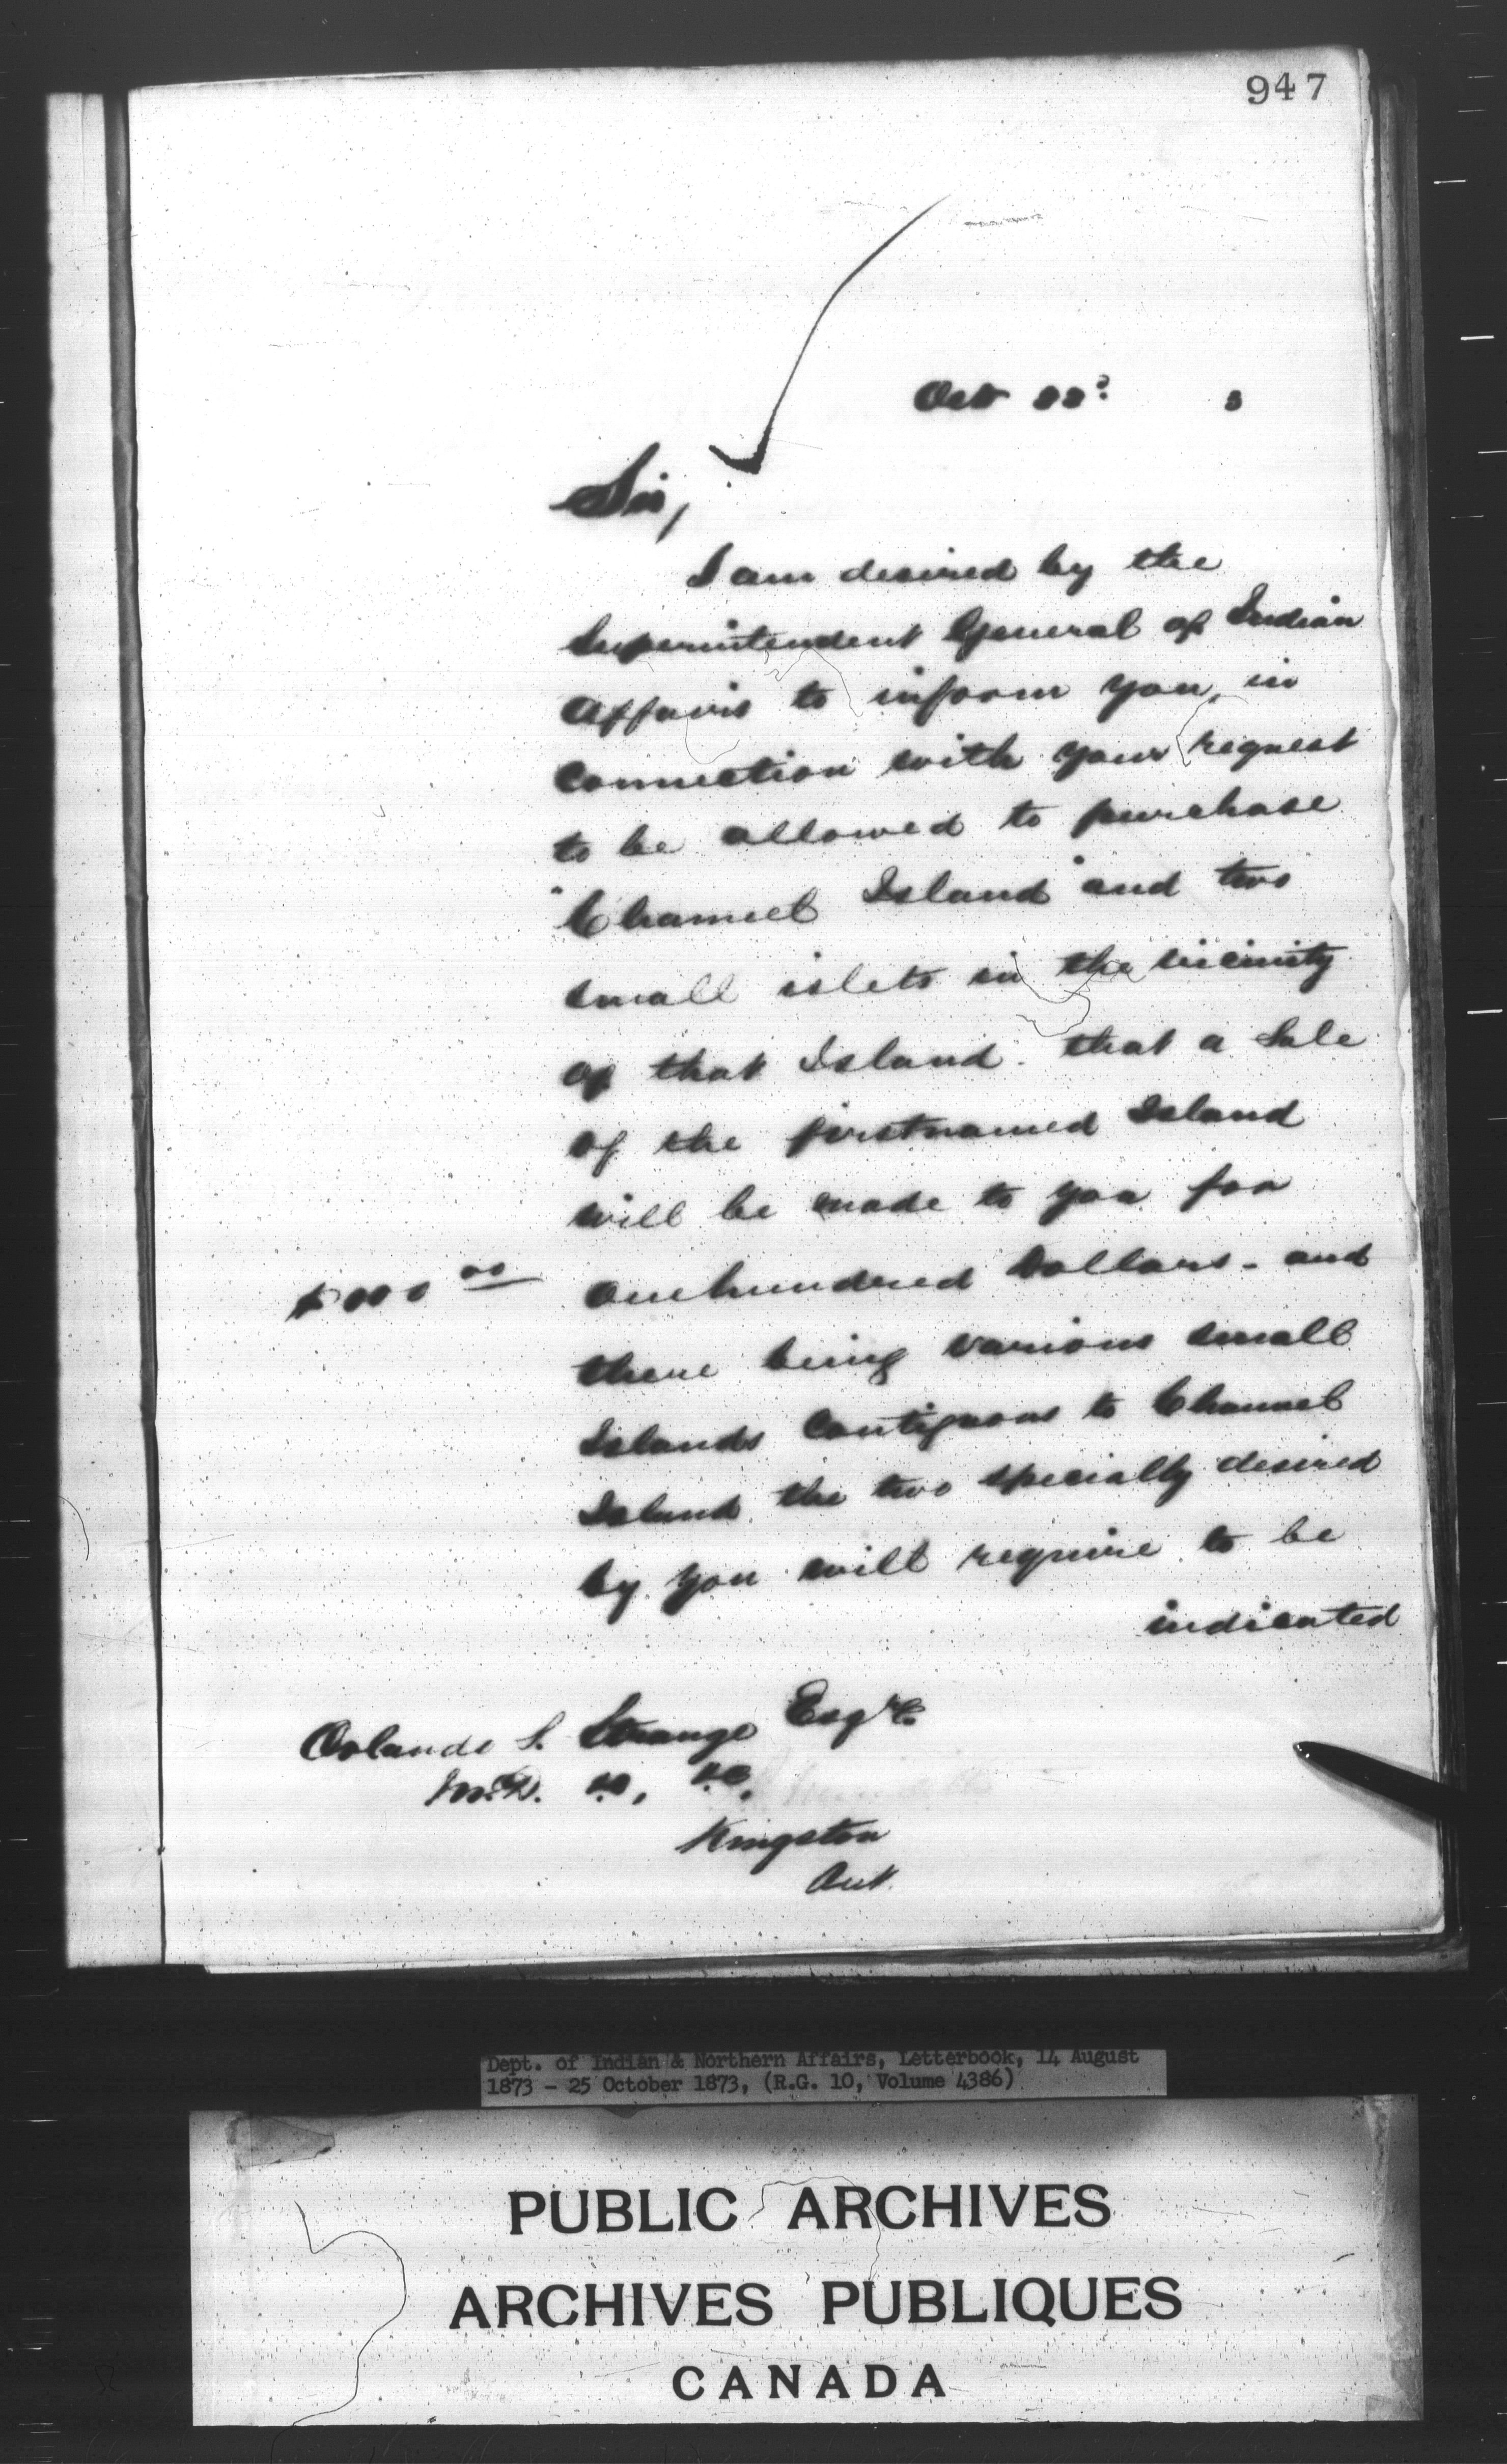 947
Oct 22d 3
Sir,
I am desired by the
Superintendent General of Indian
Affairs to inform you, in
connection with your request
to be allowed to purchase
"Channel Island" and two
small islets in the vicinity
of that Island that a Sale
of the firstnamed Island
will be made to you for
$100 00 One hundred Dollars - and
there being various small
Islands contiguous to Channel
Island, the two specially desired
by you will require to be
indicated
Orlando S. Strange Esqre
M.D. &c, &c,
Kingston
Ont.
Dept. of Indian & Northern Affairs, Letterbook, 14 August
1873 - 25 October 1873, (R.G. 10, Volume 4386)
PUBLIC ARCHIVES
ARCHIVES PUBLIQUES
CANADA